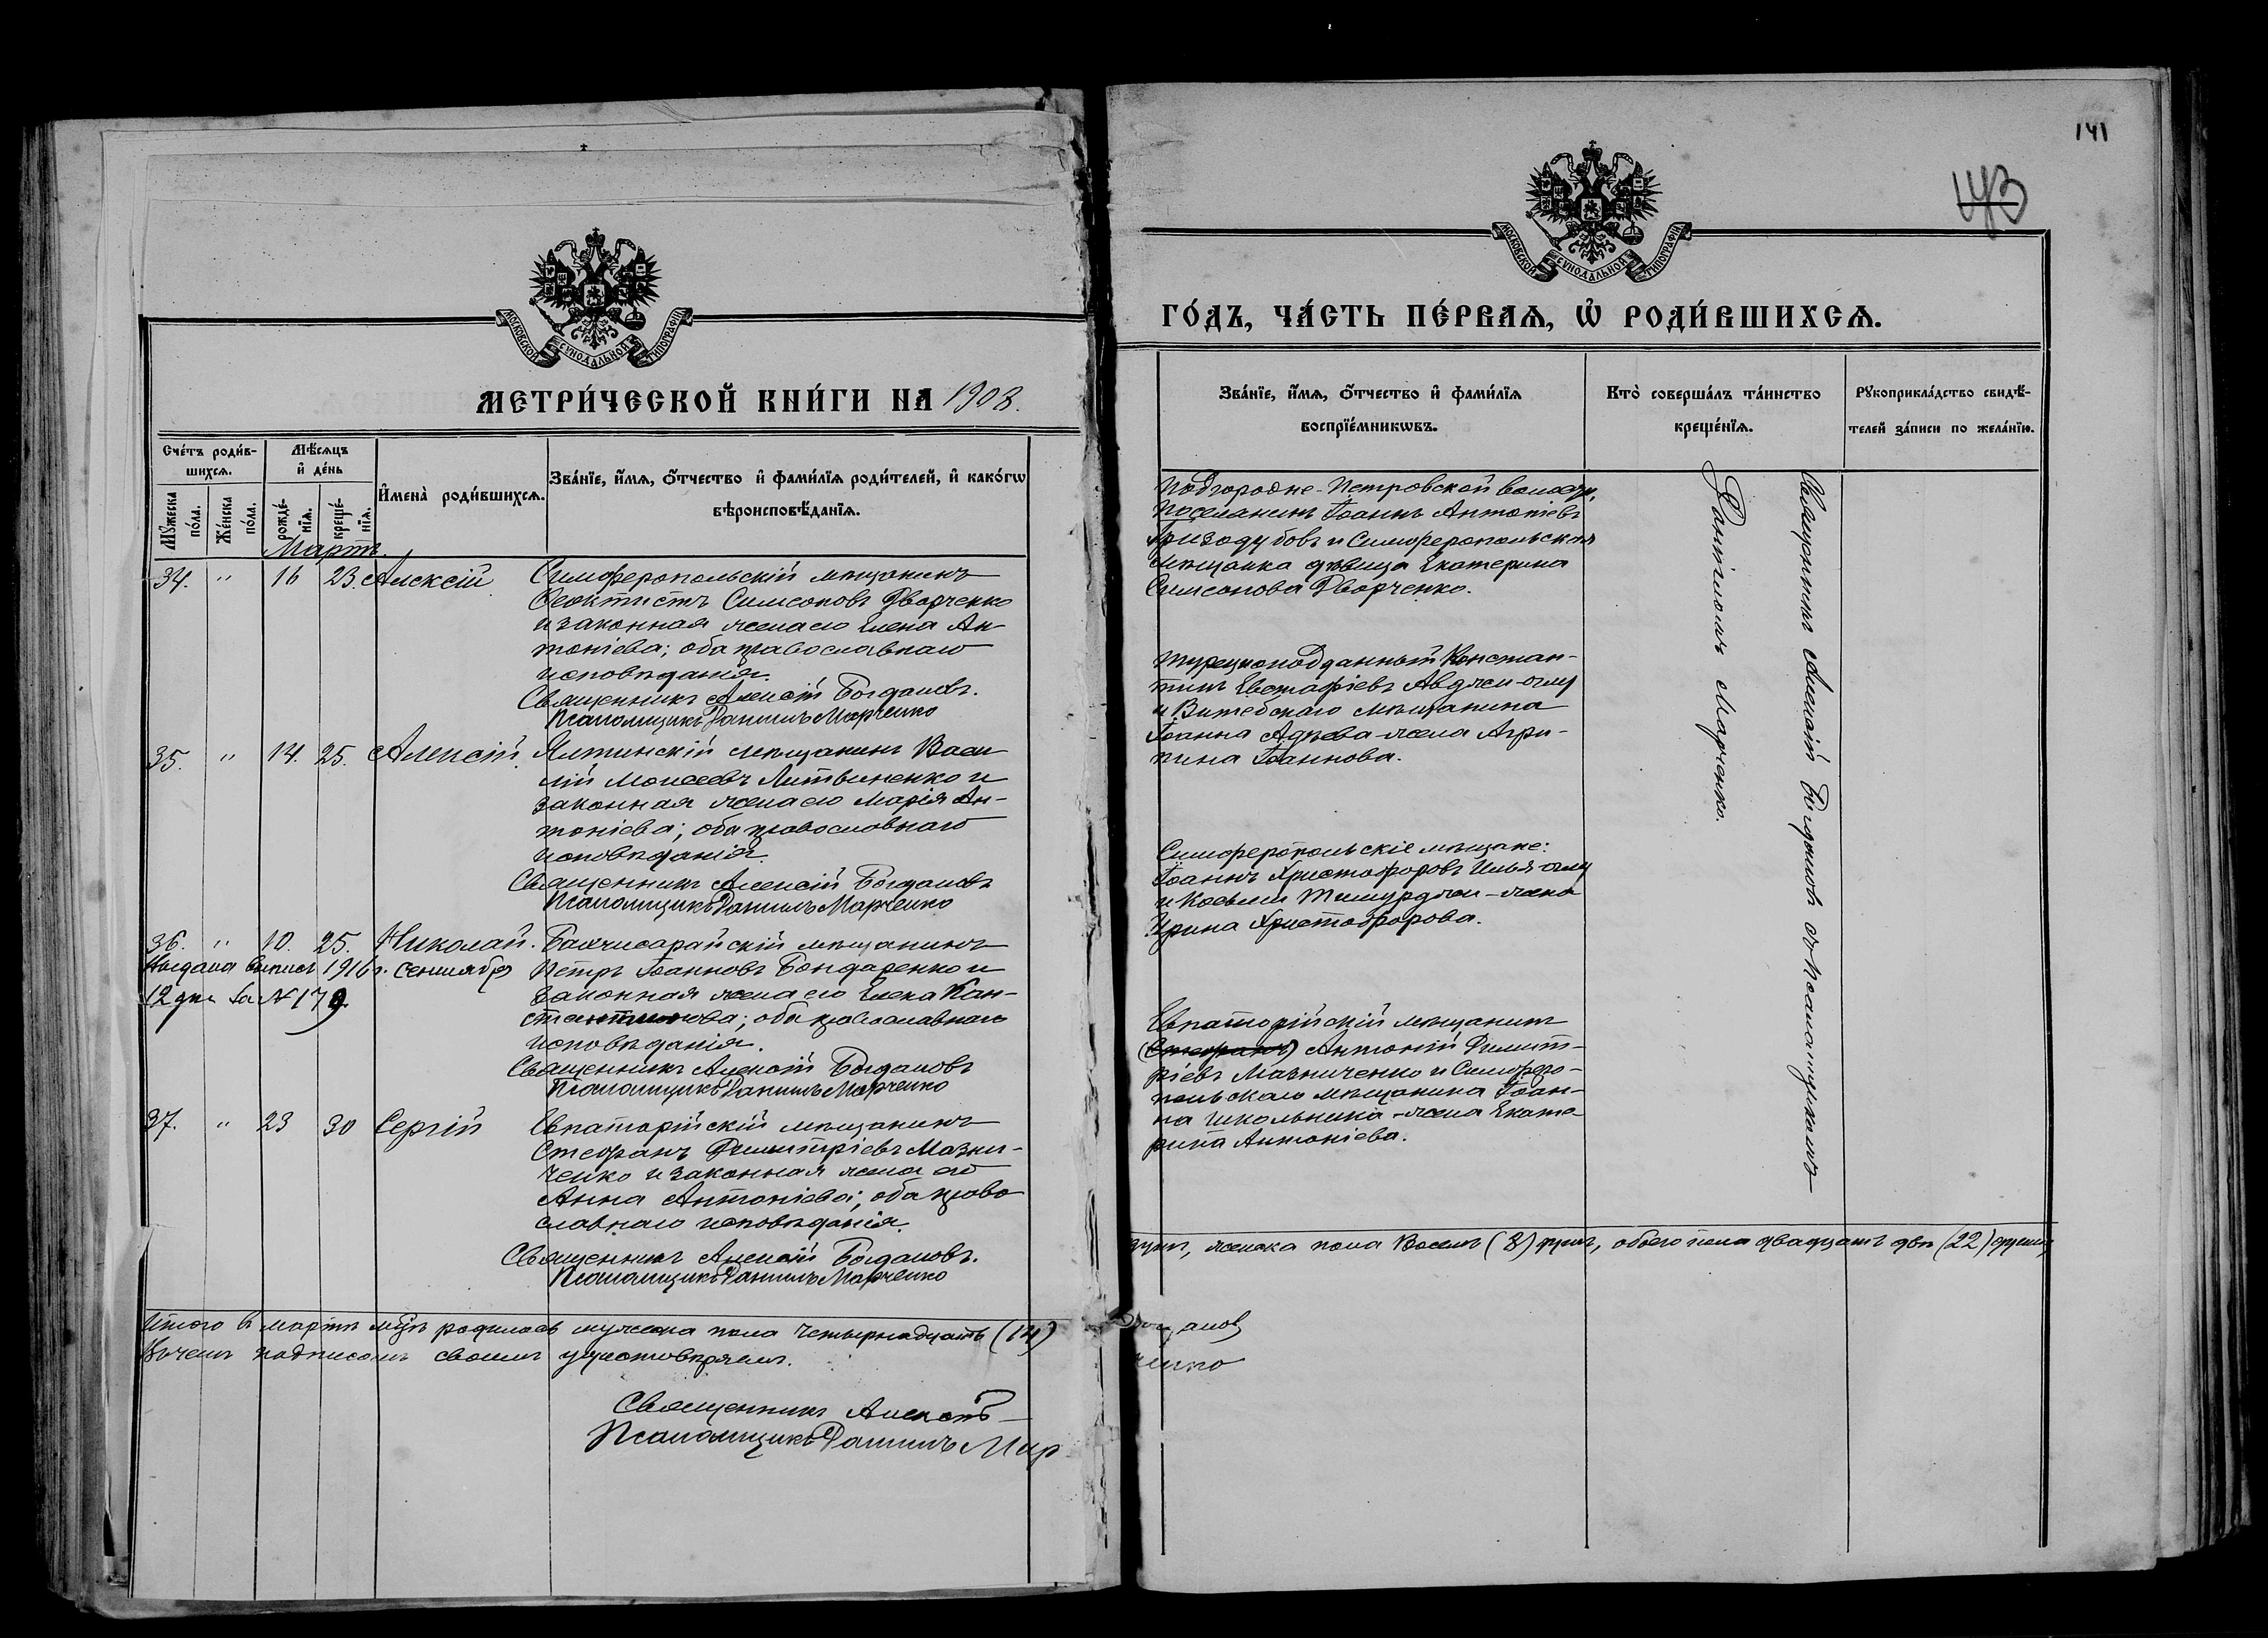 МОСКОВСКОЙ СѴНОДАЛЬНОЙ ТИПОГРАФІИ
МЕТРИ́ЧЕСКОЙ КНИ́ГИ НА 1908.
Сче́тъ роди́в-
шихсѧ.
Мѣ́сѧцъ
и҆ де́нь
Мꙋ́жеска
по́ла.
Же́нска
по́ла.
рожде́-
нїѧ.
креще́-
нїѧ.
И҆мена̀ роди́вшихсѧ.
Зва́нїе, и҆́мѧ, ѻ҆́тчество и҆ фами́лїѧ роди́телей, и҆ како́гѡ
вѣроисповѣ́данїѧ.
Мартъ.
34. " 16 23. Алексій
Симферопольскій мѣщанинъ
Ѳеоктистъ Симеоновъ Дворченко
и законная жена его Елена Ан-
тоніева; оба православнаго
исповѣданія.
Священникъ Алексій Богдановъ.
Псаломщикъ Даниилъ Марченко
35. " 14. 25. Алексій.
Ялтинскій мѣщанинъ Васи
лій Моисеевъ Литвиненко и
законная жена его Марія Ан-
тоніева; оба православнаго
исповѣданія.
Священникъ Алексій Богдановъ
Псаломщикъ Даниилъ Марченко
36. " 10. 25. Николай.
Выдана выпись 1916 г. сентября
12 дня за № 179.
Бахчисарайскій мѣщанинъ
Петръ Іоанновъ Бондаренко и
законная жена его Елена Кон-
стантинова; оба православнаго
исповѣданія.
Священникъ Алексій Богдановъ
Псаломщикъ Даниилъ Марченко
37. " 23 30 Сергій
Евпаторійскій мѣщанинъ
Стефанъ Димитріевъ Мазни-
ченко и законная жена его
Анна Антоніева; оба право
славнаго исповѣданія.
Священникъ Алексій Богдановъ.
Псаломщикъ Даниилъ Марченко
Итого въ мартѣ мцѣ родилось мужеска пола четырнадцать (14)
Въ чемъ подписомъ своимъ удостовѣряемъ.
Священникъ Алексій
Псаломщикъ Даниилъ Мар
141
143
МОСКОВСКОЙ СѴНОДАЛЬНОЙ ТИПОГРАФІИ
ГО́ДЪ, ЧА́СТЬ ПЕ́РВАѦ, Ѡ҆ РОДИ́ВШИХСѦ.
Зва́нїе, и҆́мѧ, ѻ҆́тчество и҆ фами́лїѧ
воспрїе́мникѡвъ.
Кто̀ соверша́лъ та́инство
креще́нїѧ.
Рꙋкоприкла́дство свидѣ́-
телей за́писи по жела́нїю.
Подгородне-Петровской волости,
поселянинъ Іоаннъ Антоніевъ
Гризодубовъ и Симферопольская
мѣщанка дѣвица Екатерина
Симеонова Дворченко.
Турецкоподданный Констан-
тинъ Евстафіевъ Авджи-оглу
и Витебскаго мѣщанина
Іоанна Адѣева жена Агри-
пина Іоаннова.
Симферопольскіе мѣщане:
Іоаннъ Христофоровъ Илья-оглу
и Космы Тимурджи-жена
Ирина Христофорова.
Евпаторійскій мѣщанинъ
(Стефанъ) Антоній Димит-
ріевъ Мазниченко и Симферо-
польскаго мѣщанина Іоан-
на Школьника-жена Екате
рина Антоніева.
Священникъ Алексій Богдановъ съ псаломщикомъ
Данііломъ Марченко.
душъ, женска пола восемь (8) душъ, обоего пола двадцать двѣ (22) души,
Богдановъ
ченко